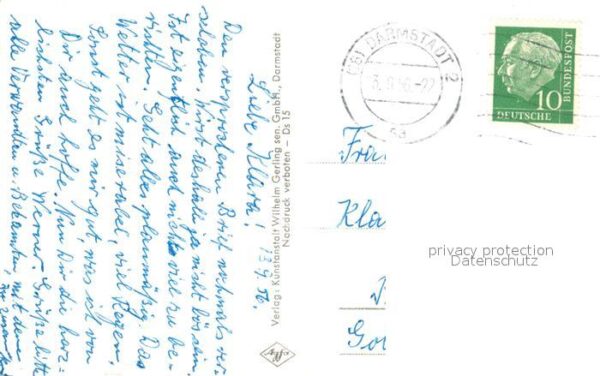 Liebe Klara! 13.9.56.
Den versprochenen Brief nochmals ver-
schoben. Wirst deshalb ja nicht bös sein.
Ist eigentlich auch nicht viel zu be-
richten. Geht alles planmäßig. Das
Wetter ist miserabel, viel Regen,
Sonst geht es mir gut, was ich von
Dir auch hoffe. Nun Dir die herz-
lichsten Grüße Werner. Grüße bitte
alle Verwandten u. Bekannten, mit denen
Du zusammen
Verlag: Kunstanstalt Wilhelm Gerling sen. GmbH., Darmstadt
Nachdruck verboten – Ds 15
Agfa
(16) DARMSTADT 2
DEUTSCHE
BUNDESPOST
10
Frau
Kla
Go
privacy protection
Datenschutz